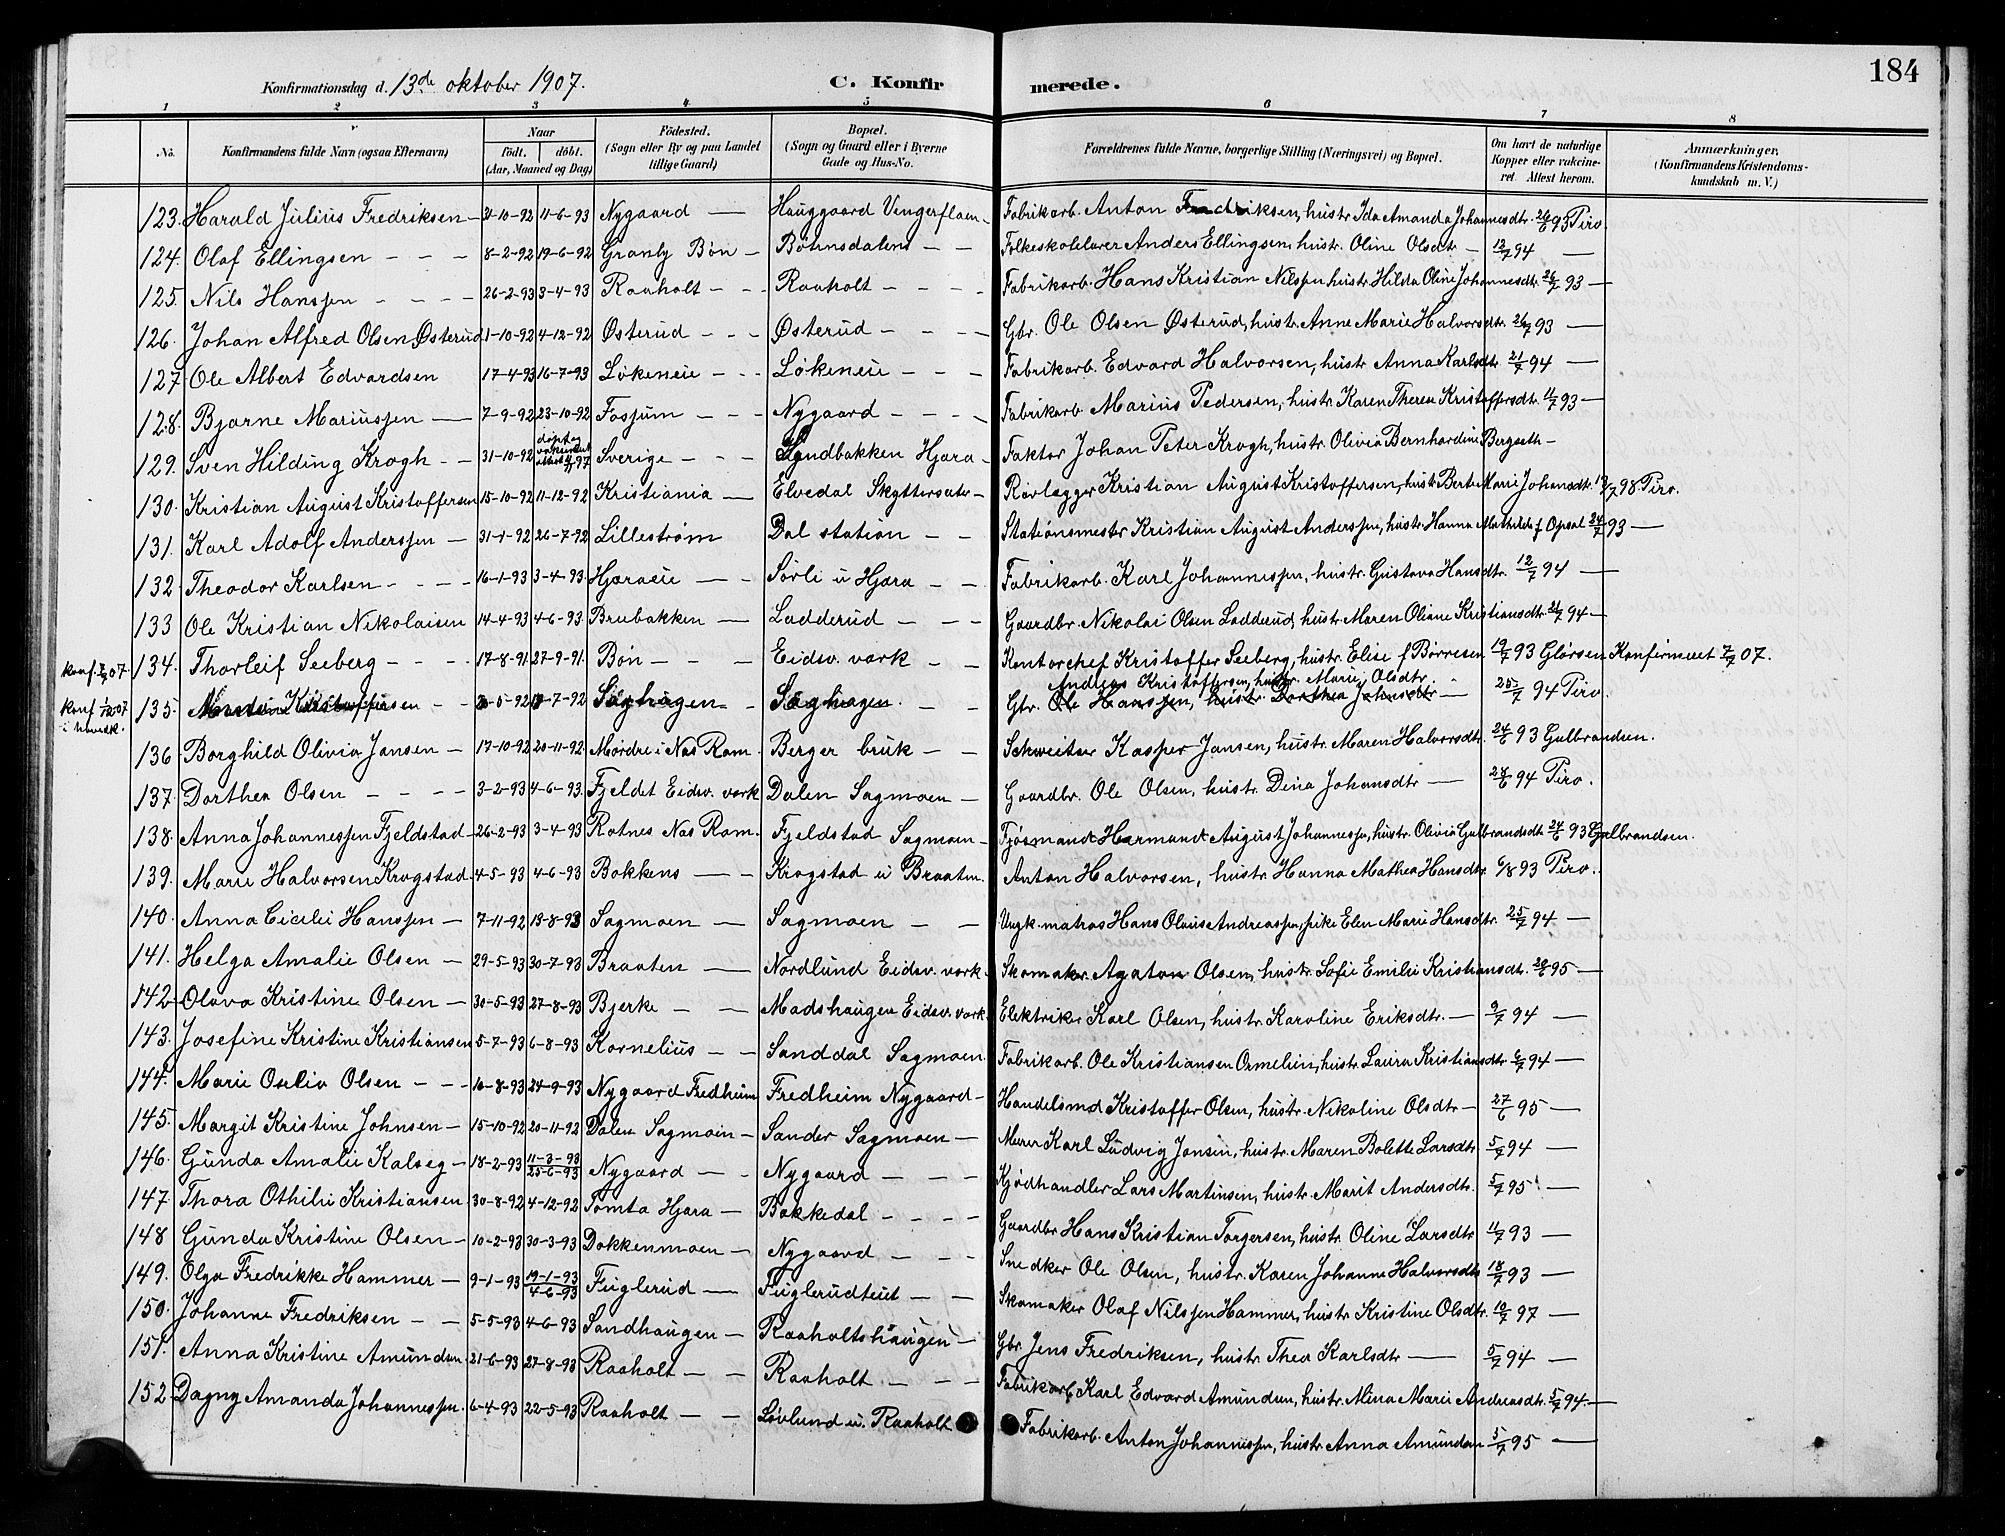 184
Konfirmationsdag d. 13de oktober 1907. C. Konfirmerede.
1 2 3 4 5 6 7 8
No. Konfirmandens fulde Navn (ogsaa Efternavn) Naar født, døbt. (Aar, Maaned og Dag) Fødested. (Sogn eller By og paa Landet tillige Gaard) Bopæl. (Sogn og Gaard eller i Byerne Gade og Hus-No. Forældrenes fulde Navne, borgerlige Stilling (Næringsvei) og Bopæl. Om havt de naturlige Kopper eller vakcineret. Attest herom. Anmærkninger, (Konfirmandens Kristendomskundskab m. V.)
123. Harald Julius Fredriksen 21-10-92 11-6-93 Nygaard Hauggaard Vengerflaen Fabrikarb. Anton Fredriksen, hustr. Ida Amanda Johannesdtr. 26/6 95 Piro.
124. Olaf Ellingsen 8-2-92 19-6-92 Granly Bøn Bøhnsdalens Folkeskolelærer Anders Ellingsen, hustr. Oline Olsdtr 12/7 94
125. Nils Hanssen 26-2-93 3-4-93 Raaholt Raaholt Fabrikarb. Hans Kristian Nilssen hustr. Hilda Oline Johannesdtr. 26/7 93
126. Johan Alfred Olsen Østerud 1-10-92 4-12-92 Østerud Østerud Gbr. Ole Olsen Østerud, hustr. Anne Marie Halvorsdtr. 26/7 93
127 Ole Albert Edvardsen 17-4-93 16-7-93 Løkeneie Løkeneie Fabrikarb. Edvard Halvorsen, hustr. Anna Karlsdtr. 21/7 94
128. Bjarne Mariussen 7-9-92 23-10-92 Fossum Nygaard Fabrikarb. Marius Pedersen, hustr. Karen Therea Kristoffersdtr. 11/7 93
129. Sven Hilding Krogh 31-10-92 døpt og vakcinert attest 97 Sverige Sandbakken Hjæra Faktor Johan Peter Krogh, hustr. Olivia Bernhardine Bergseth
130. Kristian August Kristoffersen 15-10-92 11-12-92 Kristiania Elvedal Skyttersæter Rørlægger Kristian August Kristoffersen, hustr. Berte Marie Johansdtr. 98 Piro.
131. Karl Adolf Anderssen 31-1-92 26-7-92 Lillestrøm Dal station Stationsmester Kristian August Anderssen, hustr. Hanna Mathilde f Opsal 24/7 93
132 Theodor Karlsen 16-1-93 3-4-93 Hjæraeie Sørli u Hjæra Fabrikarb. Karl Johannessen, hustr. Gustava Hansdtr. 12/7 94
133 Ole Kristian Nikolaisen 14-4-93 4-6-93 Brubakken Ladderud Gaardbr. Nikolai Olsen Ladderud, hustr. Maren Oliane Kristiansdtr. 94
konf. 7/7 07 134. Thorleif Seeberg 17-8-91 27-9-91 Bøn Eidsv. værk Kontorchef Kristoffer Seeberg, hustr. Elise f Børresen 19/7 93 Glørsen Konfirmeret 7/7 07.
Andreas Kristoffersen, hustr. Marie Olsdtr.
konf 07 135. Kristoffersen 5-92 7-92 Saghagen Saghagen. Gbr. Ole Hanssen, hustr. Dorthea Johnsdtr 25/7 94 Piro.
136 Borghild Olivia Jansen 17-10-92 20-11-92 Mørdre i Nas Rom. Berger bruk Schweitser Kasper Jansen, hustr. Maren Halvorsdtr. 24/6 93 Gulbrandsen.
137. Dorthea Olsen 3-2-93 4-6-93 Fjeldet Eidsv. værk Dalen Sagmoen Gaardbr. Ole Olsen, hustr. Dina Johansdtr 28/6 94 Piro.
138. Anna Johannessen Fjeldstad 26-2-93 3-4-93 Rotnes Nas Rom. Fjeldstad Sagmoen Fjøsmand Harmand August Johannessen, hustr. Olivia Gulbrandsdtr 24/6 93 Gulbrandsen.
139. Marie Halvorsen Krogstad 4-5-93 4-6-93 Bakkens Krogstad u Braaten Anton Halvorsen, hustr. Hanna Mathea Hansdtr 6/8 93 Piro.
140. Anna Cicilie Hanssen 7-11-92 13-8-93 Sagmoen Sagmoen Ungk. matros Hans Olaus Andreassen, pike Elen Marie Hansdtr. 25/7 94
141. Helga Amalie Olsen 29-5-93 30-7-93 Braaten Nordlund Eidsv. værk. Skomaker Agaton Olsen, hustr. Sofie Emilie Kristiansdtr. 20/6 95
142 Olava Kristine Olsen 30-5-93 27-8-93 Bjerke Madshaugen Eidsv. værk. Elektriker Karl Olsen, hustr. Karoline Eriksdtr. 9/7 94
143. Josefine Kristine Kristiansen 5-7-93 6-8-93 Kornelius Sanddal Sagmoen Fabrikarb. Ole Kristiansen Ormelien, hustr. Laura Kristiansdtr 6/7 94
144. Marie Oselia Olsen 10-8-93 24-9-93 Nygaard Fredheim Fredheim Nygaard Handelsmd Kristoffer Olsen, hustr. Nikoline Olsdtr 27/6 95
145. Margit Kristine Johnsen 15-10-92 20-11-92 Dalen Sagmoen Sander Sagmoen Murer Karl Ludvig Jonsen, hustr. Maren Bolette Larsdtr. 5/7 94
146. Gunda Amalie Kalseg 18-2-93 11-3-93 25-6-93 Nygaard Nygaard Kjødhandler Lars Martinsen, hustr. Marit Andersdtr. 5/7 95
147. Thora Othilie Kristiansen 30-8-92 4-12-92 Tømta Hjæra Bakkedal Gaardbr Hans Kristian Torgersen, hustr. Oline Larsdtr 11/7 93
148 Gunda Kristine Olsen 10-2-93 30-3-93 Dokkenmoen Nygaard Snedker Ole Olsen, hustr. Karen Johanne Halvorsdtr 18/7 93
149. Olga Fredrikke Hammer 9-1-93 19-1-93 4-6-93 Fuglerud Fuglerudteiet Skomaker Olaf Nilssen Hammer, hustr Kristine Olsdtr. 10/7 97
150. Johanne Fredriksen 5-5-93 4-6-93 Sandhaugen Raaholtshaugen Gbr. Jens Fredriksen, hustr. Thea Karlsdtr 5/7 94
151. Anna Kristine Amundsen 21-6-93 27-8-93 Raaholt Raaholt Fabrikarb. Karl Edvard Amundsen, hustr. Mina Marie Andreasdtr. 5/7 94.
152 Dagny Amanda Johannessen. 6-4-93 22-5-93 Raaholt Løvlund u. Raaholt Fabrikarb. Anton Johannessen, hustr. Anna Amundsen 5/7 95